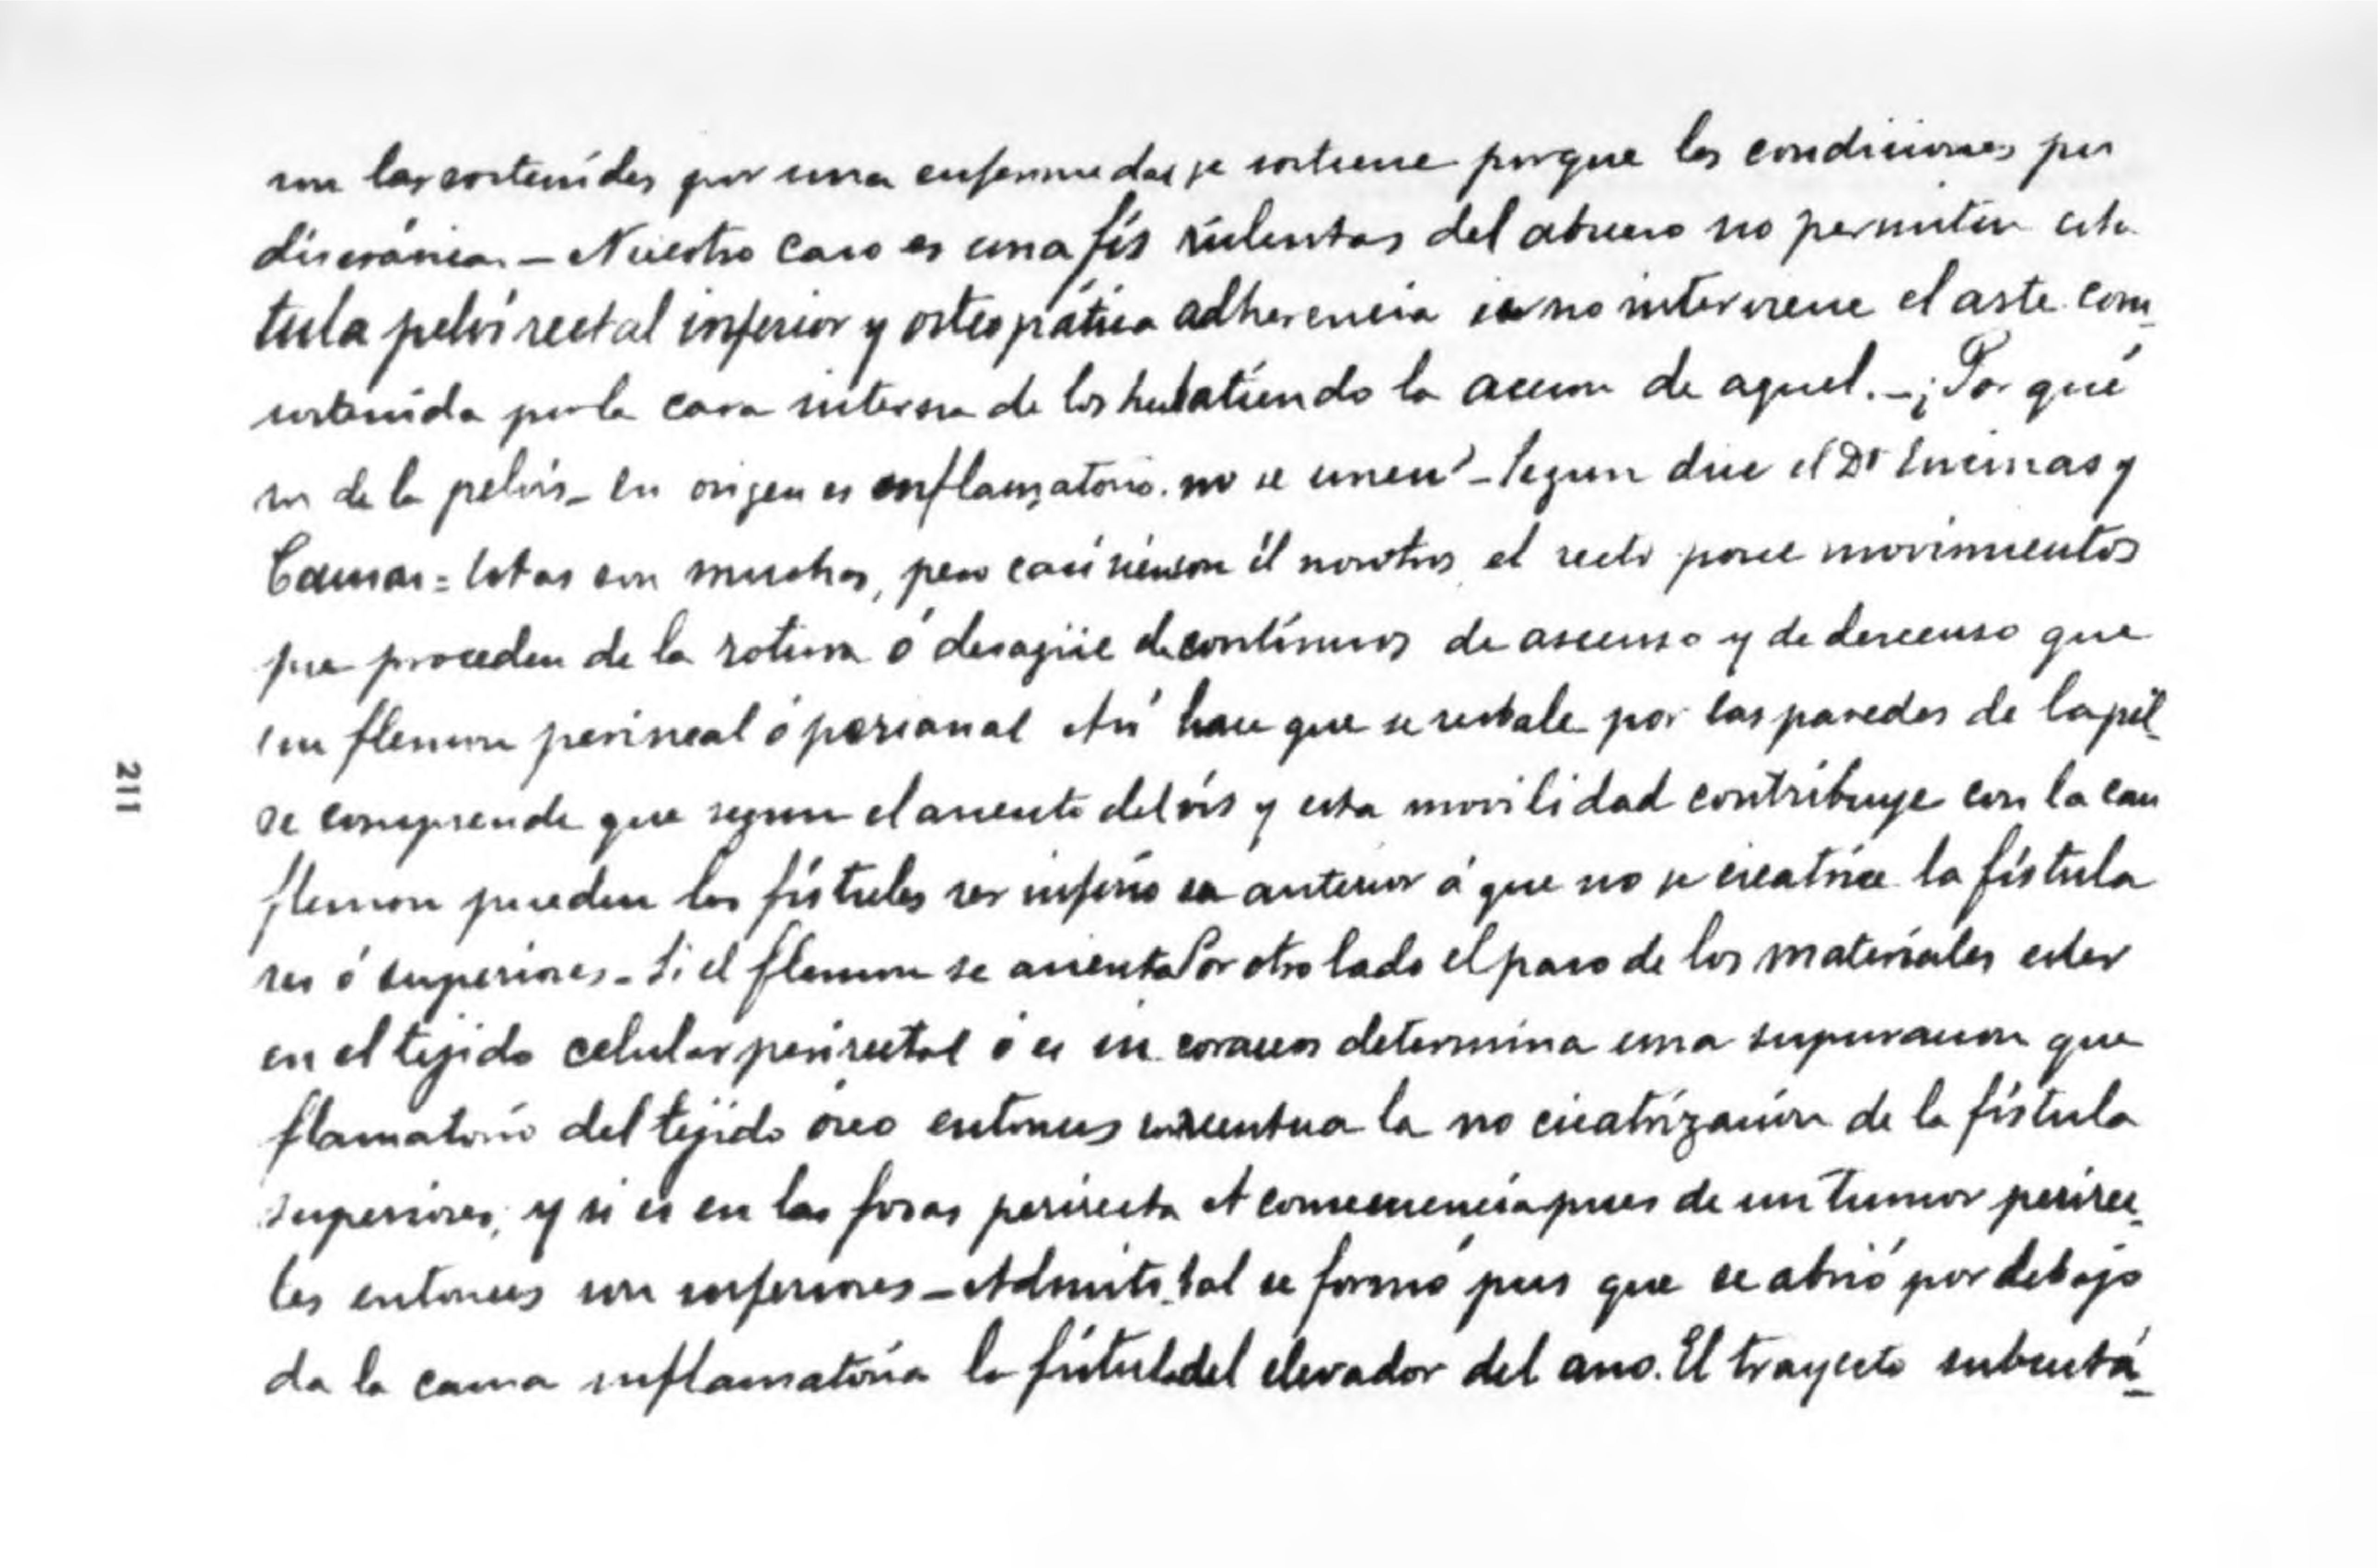 son las sostenidas por una enfermedad
discrásica.— Nuestro caso es una fís
tula pelvi rectal inferior y osteopática
sostenida por la cara interna de los hue
sos de la pelvis— Su origen es inflamatorio.
Causas = Estas son muchas, pero casi siem
pre proceden de la rotura ó desagüe de
un flemon perineal ó perianal Así
se comprende que segun el asiento del
flemon pueden las fístulas ser inferio
res ó superiores— Si el flemon se asienta
en el tejido celular perirectal ó es in
flamatorio del tejido óseo entonces son
superiores, y si es en las fosas perirecta
les entonces son inferiores— Admiti
da la causa inflamatoria la fístula
se sostiene porque las condiciones pu
rulentas del absceso no permiten esta
adherencia si no interviene el arte com_
batiendo la accion de aquel.—¿Por qué
no se unen?— Segun dice el Dr Encinas y
con él nosotros, el recto posee movimientos
contínuos de ascenso y de descenso que
hace que se resbale por las paredes de la pél_
vis y esta movilidad contribuye con la cau
sa anterior á que no se cicatrice la fístula
Por otro lado el paso de los materiales ester
coraceos determina una supuracion que
acentua la no cicatrización de la fístula
A consecuencia pues de un tumor perirec_
tal se formó pus que se abrió por debajo
del elevador del ano. El trayecto subcutá_
211